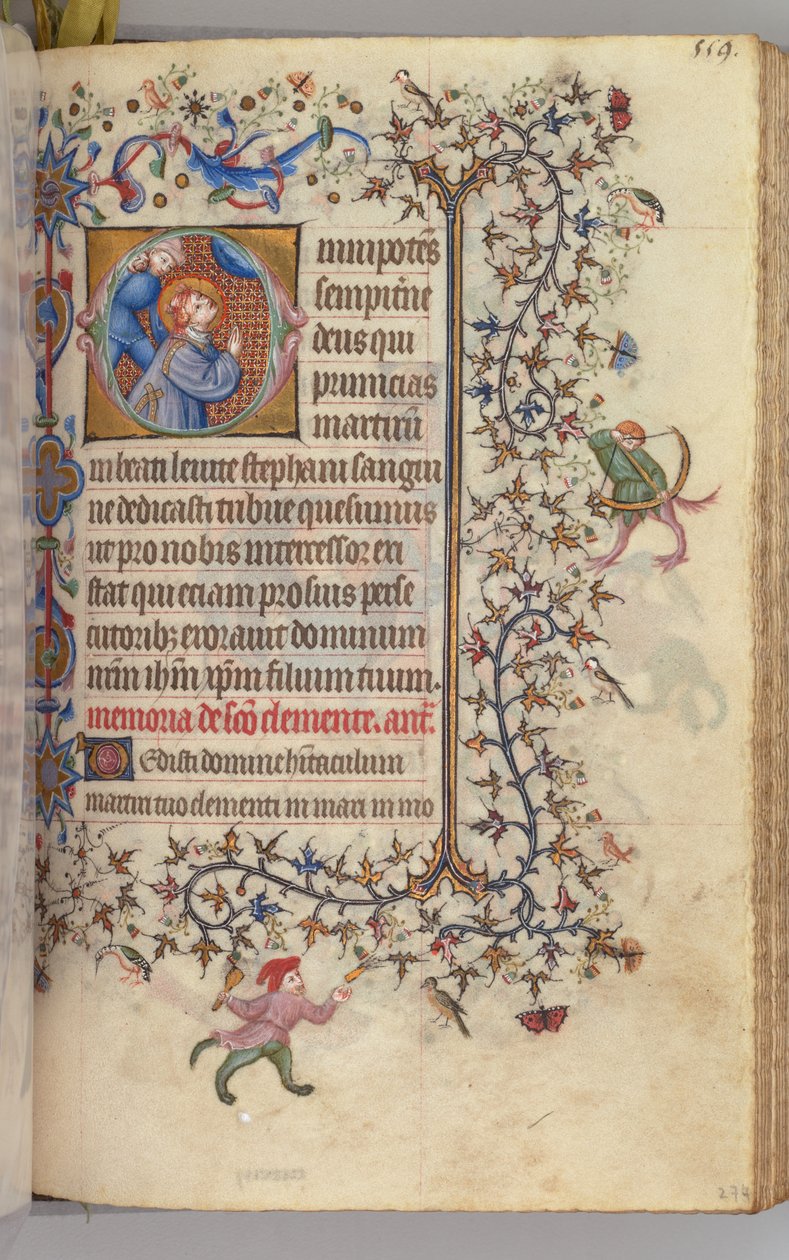 559.
mnipotēs
sempit̄ne
deus qui
primicias
martirū
in beati leuite stephani sangui
ne dedicasti tribue quesumus
ut pro nobis intercessor exi
stat qui eciam pro suis perse
cutoribꝫ exorauit dominum
nr̄m ihm̄ xp̄m filium tuum.
memoria de sc̄o clemente. ant̄.
Dedisti domine hītaculum
martiri tuo clementi in mari in mo
274